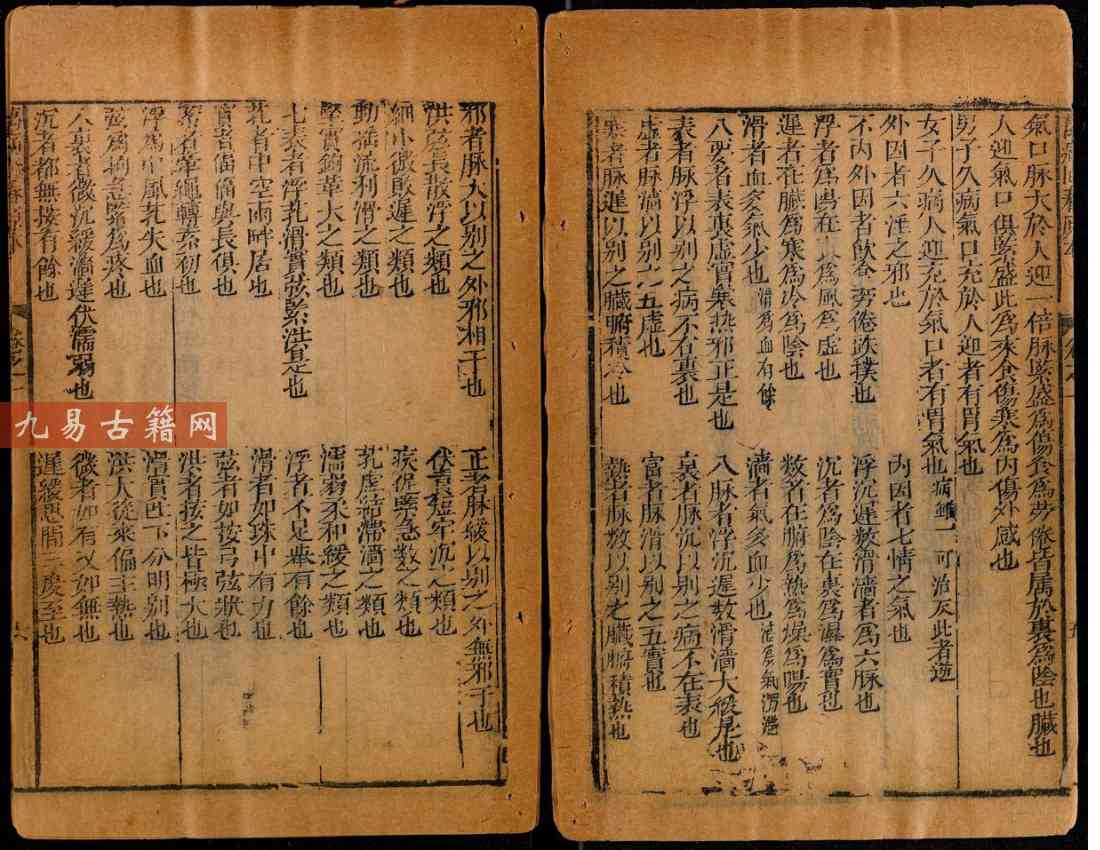 氣口脉大於人迎一倍脉緊盛爲傷食爲勞倦皆属於裏爲陰也臟也
人迎氣口俱緊盛此爲夾食傷寒爲内傷外感也
男子久病氣口充於人迎者有胃氣也
女子久病人迎充於氣口者有胃氣也病雖 可治反此者逆
外因者六淫之邪也
内因者七情之氣也
不内外因者飲食勞倦跌撲也
浮沉遲数滑濇者爲六脉也
浮者爲陽在 爲風爲虚也
沉者爲陰在裏爲濕爲實也
遲者在臟爲寒爲冷爲陰也
数者在腑爲熱爲燥爲陽也
滑者血多氣少也滑爲血有餘
濇者氣多血少也濇爲氣
八要者表裏虚實寒熱邪正是也
八脉者浮沉遲数滑濇大緩是也
表者脉浮以别之病不在裏也
裏者脉沉以别之病不在表也
虚者脉濇以别之五虚也
實者脉滑以别之五實也
寒者脉遲以别之臟腑積冷也
熱者脉数以别之臟腑積熱也
邪者脉大以别之外邪相干也
正者脉緩以别之外無邪干也
洪 散浮之類也
伏 短牢沉之類也
細小微敗遲之類也
疾促緊急数之類也
動揺流利滑之類也
芤虚結滞濇之類也
堅實鈎革大之類也
濡弱柔和緩之類也
七表者浮芤滑實弦緊洪是也
浮者不足舉有餘也
芤者中空兩畔居也
滑者如珠中有力也
實者愊愊與長俱也
弦者如按弓弦狀也
緊者牽繩轉索初也
洪者按之皆極大也
浮爲中風芤失血也
滑實 下分明别也
弦爲拘急緊爲疼也
洪大從來偏主熱也
八裏者微沉緩濇遲伏濡弱也
微者如有又如無也
沉者都無按有餘也
遲緩息間三度至也
卷之一
九易古籍网